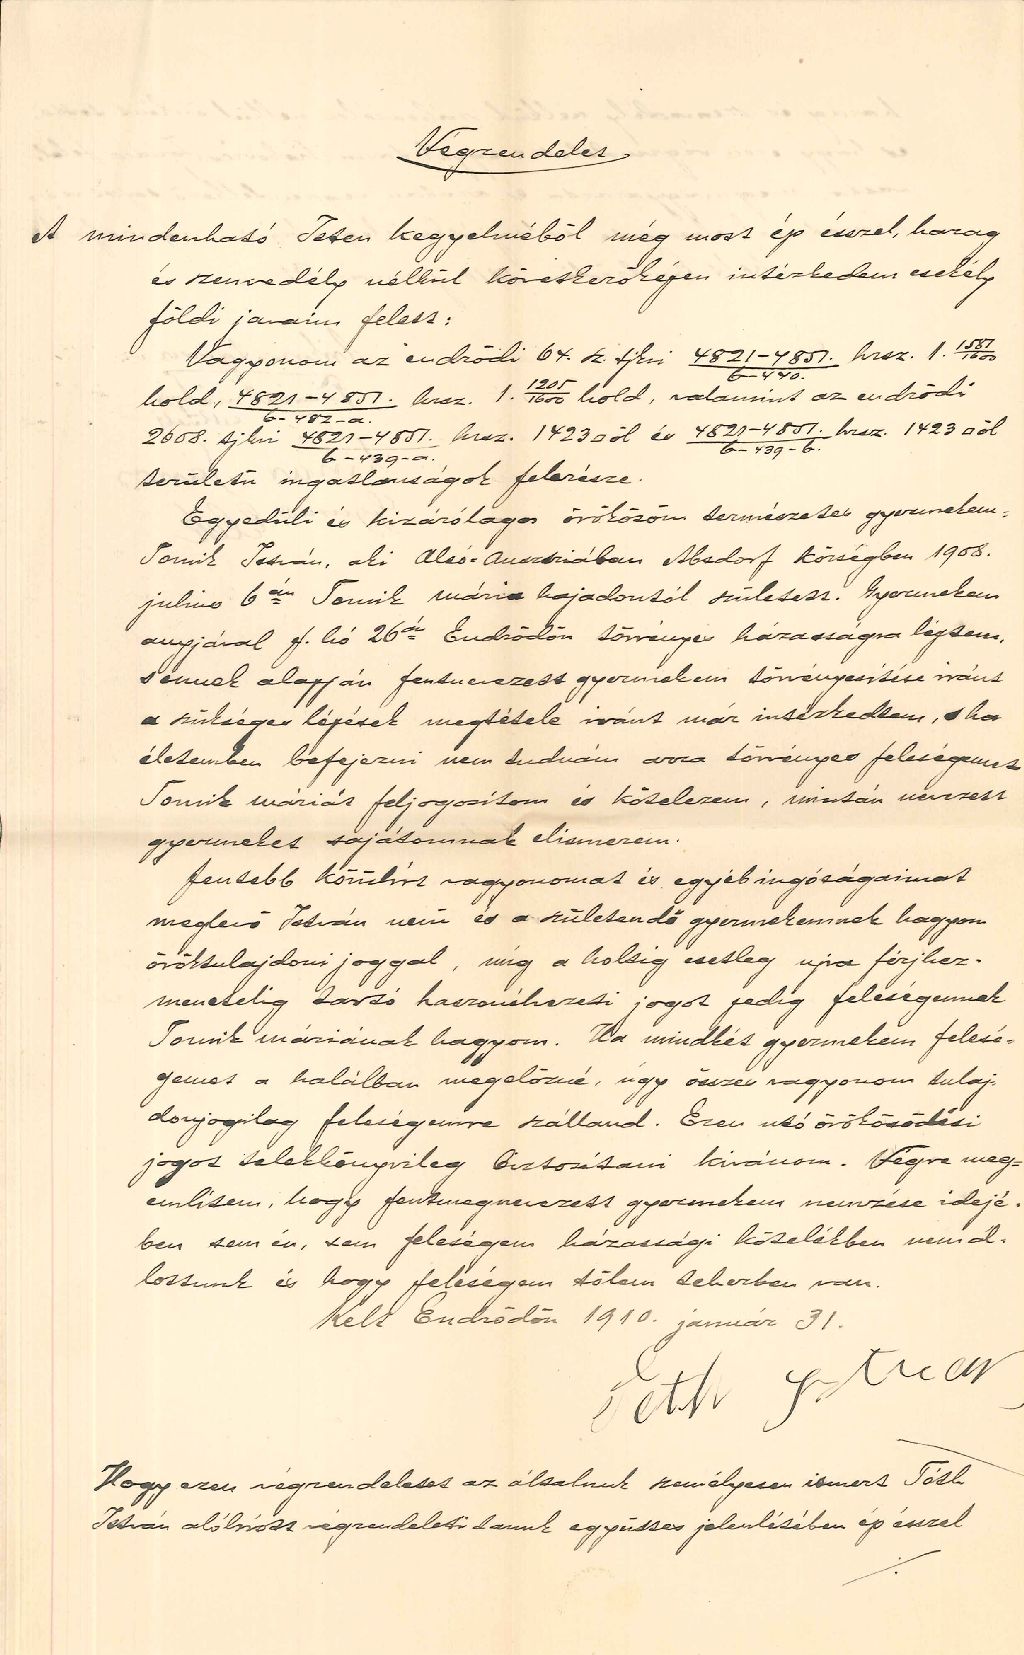 Végrendelet
A mindenható Isten kegyelméből még most ép ésszel, harag
és szenvedély nélkül következőképen intézkedem csekély
földi javaim felett:
Vagyonom az endrődi 64. sz. tjkvi 4821-4851./b-440. hrsz. 1. 1581/1600
hold, 4821-4851./b-482-a. hrsz. 1. 1205/1600 hold, valamint az endrődi
2608. tjkvi 4821-4851./b-439-a. hrsz. 1423 □öl és 4821-4851./b-439-b. hrsz. 1423 □öl
területü ingatlanságok felerésze.
Egyedüli és kizárólagos örökösöm természetes gyermekem-
Tomik István, aki Alsó-Ausztriában Absdorf községben 1908.
julius 6án Tomik mária hajadontól született. Gyermekem
anyjával f. hó 26án Endrődön törvényes házasságra léptem,
s ennek alapján fentnevezett gyermekem törvényesítése iránt
a szükséges lépések megtétele iránt már intézkedtem, s ha
életemben befejezni nem tudnám arra törvényes feleségemet
Tomik máriát feljogosítom és kötelezem, miután nevezett
gyermeket sajátomnak elismerem.
Fentebb körülírt vagyonomat és egyéb ingóságaimat
meglevő István nevü és a születendő gyermekemnek hagyom
öröktulajdoni joggal, míg a holtig esetleg ujra férjhez-
menetelig tartó haszonélvezeti jogot pedig feleségemnek
Tomik máriának hagyom. Ha mindkét gyermekem felesé-
gemet a halálban megelőzné, úgy összes vagyonom tulaj-
donjogilag feleségemre szálland. Ezen utó örökösödési
jogot telekkönyvileg biztosítani kívánom. Végre meg-
említem, hogy fentmegnevezett gyermekem nemzése idejé-
ben sem én, sem feleségem házassági kötelékben nem ál-
lottunk és hogy feleségem tőlem teherben van.
Kelt Endrődön 1910. január 31.
Hogy ezen végrendeletet az általunk személyesen ismert Tóth
István alólírott végrendeleti tanuk együttes jelenlétében ép ésszel
./.